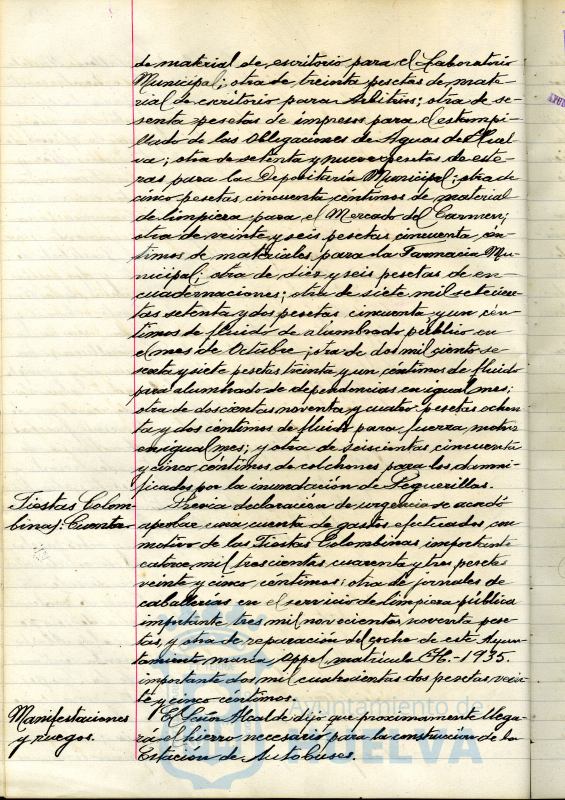 de material de escritorio para el Laboratorio
Municipal; otra de treinta pesetas de mate-
rial de escritorio para Arbitrios; otra de se-
senta pesetas de impresos para el estampi-
llado de las Obligaciones de Aguas de Huel-
va; otra de setenta y nueve pesetas de este-
ras para la Depositaría Municipal; otra de
cinco pesetas cincuenta céntimos de material
de limpieza para el Mercado del Carmen;
otra de veinte y seis pesetas cincuenta cén-
timos de materiales para la Farmacia Mu-
nicipal; otra de diez y seis pesetas de en-
cuadernaciones; otra de siete mil setecien-
tas setenta y dos pesetas cincuenta y un cén-
timos de fluido de alumbrado público en
el mes de Octubre; otra de dos mil ciento se-
senta y siete pesetas treinta y un céntimos de fluido
para alumbrado de dependencias en igual mes;
otra de doscientas noventa y cuatro pesetas ochen-
ta y dos céntimos de fluido para fuerza motriz
en igual mes; y otra de seiscientas cincuenta
y cinco céntimos de colchones para los damni-
ficados por la inundación de Peguerillas.
Fiestas Colom-
binas: Cuenta
Previa declaración de urgencia se acordó
aprobar una cuenta de gastos efectuados con
motivo de las Fiestas Colombinas importante
catorce mil trescientas cuarenta y tres pesetas
veinte y cinco céntimos; otra de jornales de
caballerías en el servicio de limpieza pública
importante tres mil novecientas noventa pese-
tas, y otra de reparación del coche de este Ayun-
tamiento marca Oppel, matrícula H.-1935.
importante dos mil cuatrocientas dos pesetas vein-
te y cinco céntimos.
Manifestaciones
y ruegos.
El Señor Alcalde dijo que proximamente llega-
ra el hierro necesario para la construcción de la
Estación de Autobuses.
Ayuntamiento de
HUELVA